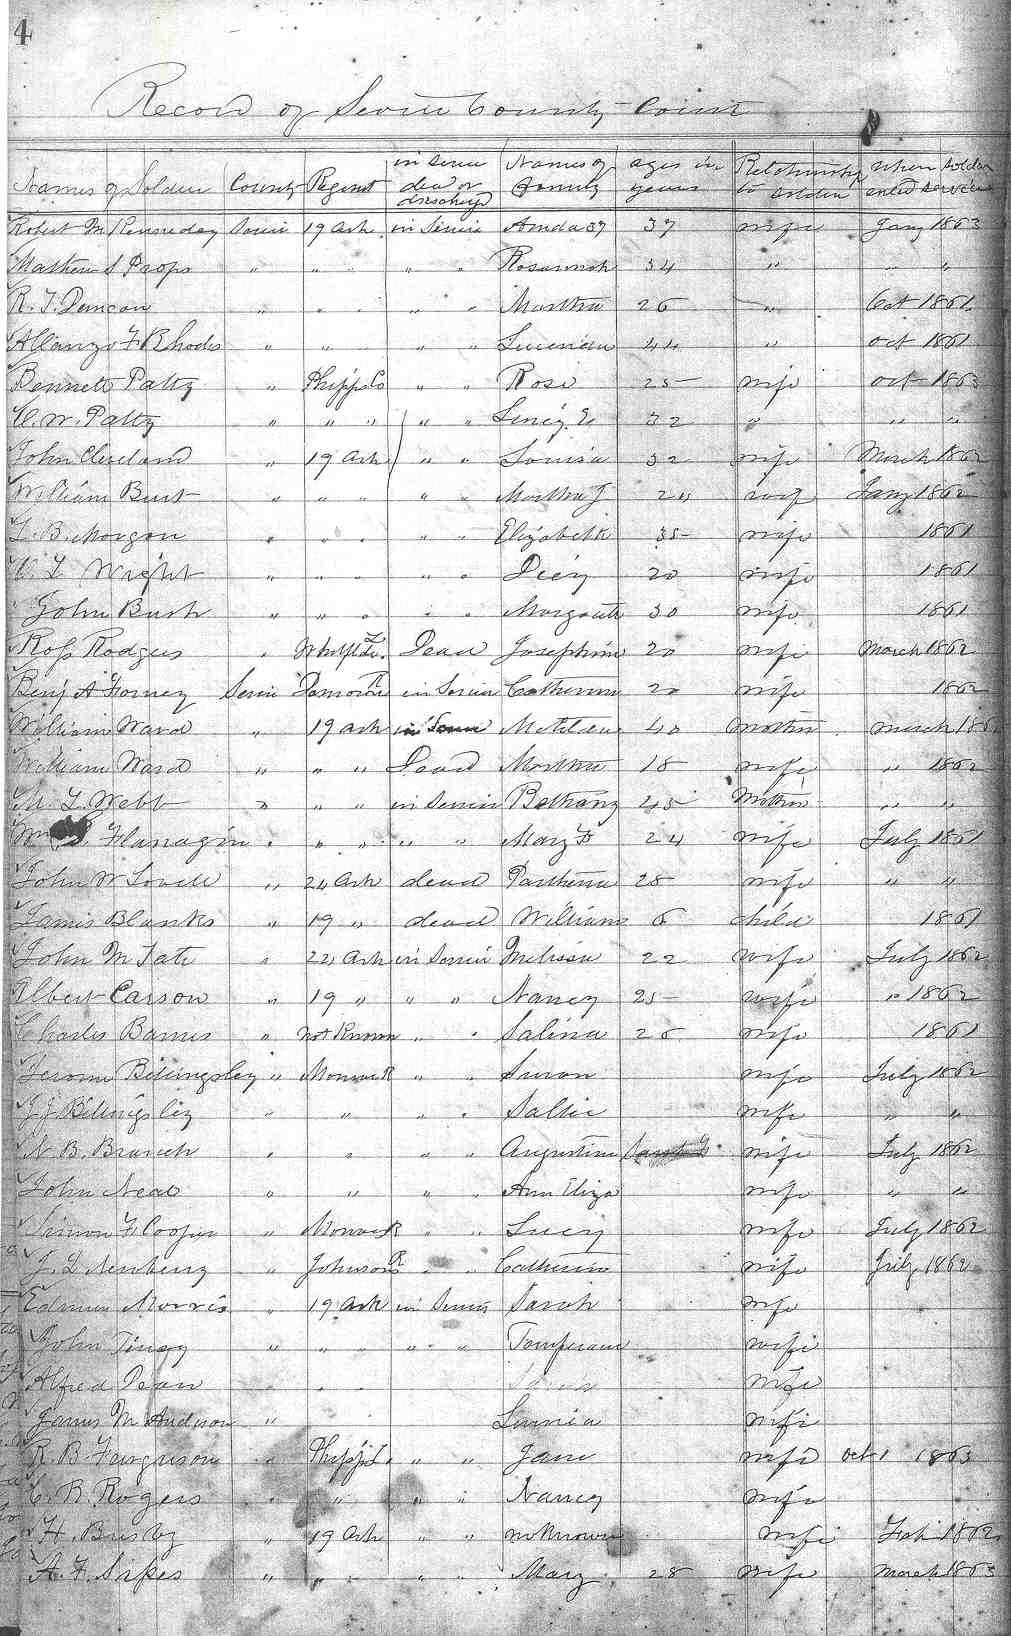 4
Record of Sevier County Court
Names of Soldier County Regimt in Servic dead or discharged Names of family ages in years Relationship to soldier when soldier entered service
Robert M Kenneday Sevier 19 Ark in Service Amda 37 37 wife Jany 1863
Mathew S Props " " " " " Rosannah 34 " " "
R. T. Duncan " " " " Martha 26 " Oct 1861
Allanzo F Rhodes " " " " Lucinda 44 " oct 1861
Bennett Paltz " Phipps Co " " Rosi 25 wife oct 1863
C. W. Paltz " " " " " Lucy E 32 " " "
John Cleveland " 19 Ark " " Louisa 32 wife March 1862
William Burt " " " " " Martha J 24 wife Jany 1862
L. B. Morgan " " " " " Elizabeth 35 wife 1861
Wright " " " " " Dicy 20 wife 1861
John Bush " " " " " Margarett 30 wife 1861
Ross Rodgers " Dead Josephine 20 wife March 1862
Benj A Forney Sevier in Service Catherine 20 wife 1862
William Ward " 19 Ark in Matilda 40 Mother March 186
William Ward " " " Dead Martha 18 wife " 1862
M. L. Webb " " " in Service Bethany 45 Mother " "
Wm Flanagin " " " " " Mary F 24 wife July 1861
John W Lovell " 24 Ark dead Parthena 28 wife " "
James Blanks " 19 " dead William 6 child 1861
John M Tate " 22 Ark in Service Melissa 22 wife July 1862
Albert Carson " 19 " " " Nancy 25 wife " 1862
Charles Barnes " not Known " " Salina 26 wife 1861
Jerome Billingsley " Monroe R " " Susan wife July 1862
J J Billingsley " " " " Sallie wife " "
N. B. Branch " " " " Augustine wife July 1862
John Neal " " " " Ann Eliza wife " "
Simon F Cooper " Monroe R " " Lucy wife July 1862
J. L Newberry " Johnsons R " " Catherine wife July 1862
Edmun Morris " 19 Ark in Servic Sarah wife
John " " " " " Temperance wife
Alfred Dean " " wife
James M Anderson " " wife
R. B. Furguson " Phipps " " Jane wife oct 1 1863
C. R. Rogers " " " " Nancy wife
H. Busby " 19 Ark " " unknown wife Feb 1862
A. F. Sipes " " " " " Mary 28 wife March 1863